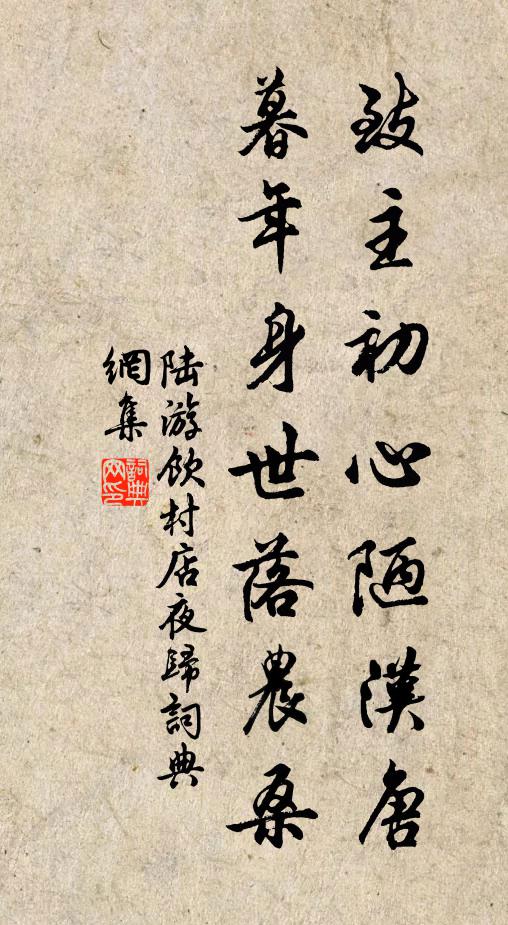 致主初心陋漢唐
暮年身世落農桑
陆游飲村店夜歸詞典
網集
詞典网印